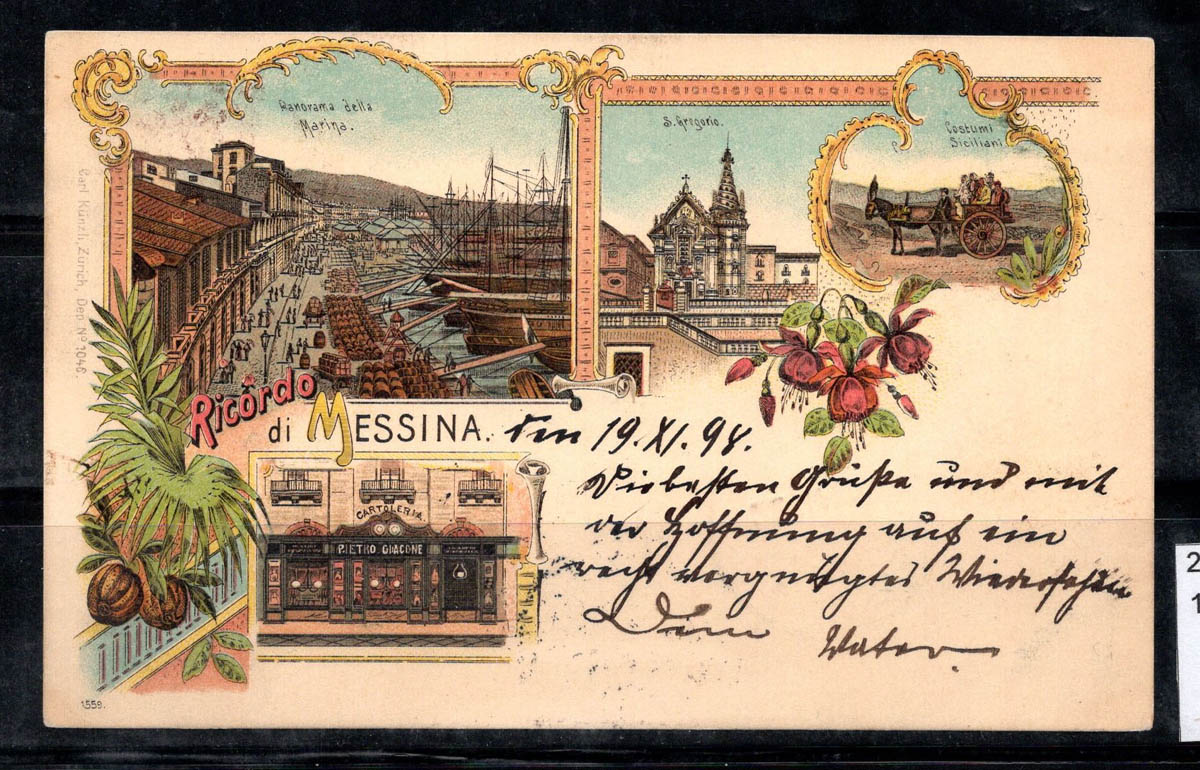 Panorama della
Marina.
S. Gregorio.
Costumi
Siciliani
Carl Künzli, Zürich, Dep. No 7046.
Ricordo
di MESSINA.
den 19.XI.98.
Die besten Grüße und mit
der Hoffnung auf ein
recht vergnügtes Wiedersehen
Dein Vater.
CARTOLERIA
PIETRO GIACONE
1559.
2
1